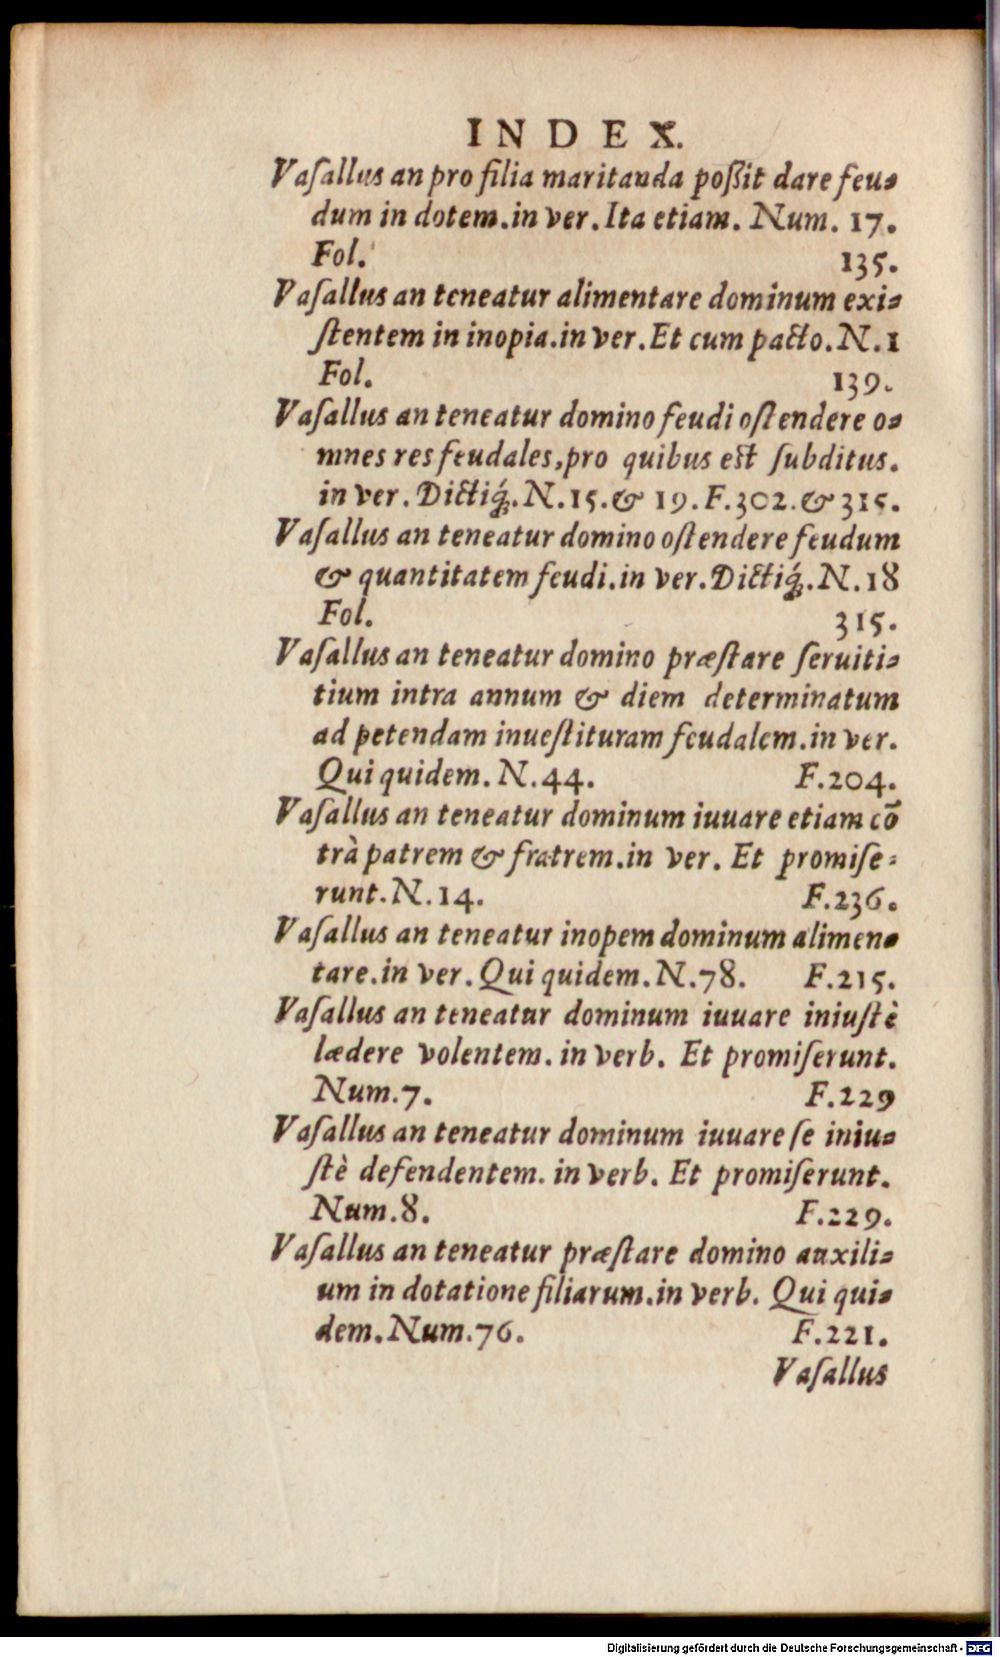 INDEX.
Vaſallus an pro filia maritanda poßit dare feu-
dum in dotem.in ver.Ita etiam. Num. 17.
Fol. 135.
Vaſallus an teneatur alimentare dominum exi-
ſtentem in inopia.in ver.Et cum pacto.N.1
Fol. 139.
Vaſallus an teneatur domino feudi oſtendere o-
mnes res feudales,pro quibus est ſubditus.
in ver.Dictiq́;.N.15.& 19.F.302.& 315.
Vaſallus an teneatur domino oſtendere feudum
& quantitatem feudi.in ver.Dictiq́;.N.18
Fol. 315.
Vaſallus an teneatur domino præſtare ſeruiti-
tium intra annum & diem determinatum
ad petendam inueſtituram feudalem.in ver.
Qui quidem. N.44. F.204.
Vaſallus an teneatur dominum iuuare etiam cō
trà patrem & fratrem.in ver. Et promiſe-
runt.N.14. F.236.
Vaſallus an teneatur inopem dominum alimen-
tare.in ver.Qui quidem.N.78. F.215.
Vaſallus an teneatur dominum iuuare iniuſtè
lædere volentem. in verb. Et promiſerunt.
Num.7. F.229
Vaſallus an teneatur dominum iuuare ſe iniu-
ſtè defendentem. in verb. Et promiſerunt.
Num.8. F.229.
Vaſallus an teneatur præſtare domino auxili-
um in dotatione filiarum.in verb. Qui qui-
dem.Num.76. F.221.
Vaſallus
Digitalisierung gefördert durch die Deutsche Forschungsgemeinschaft - DFG